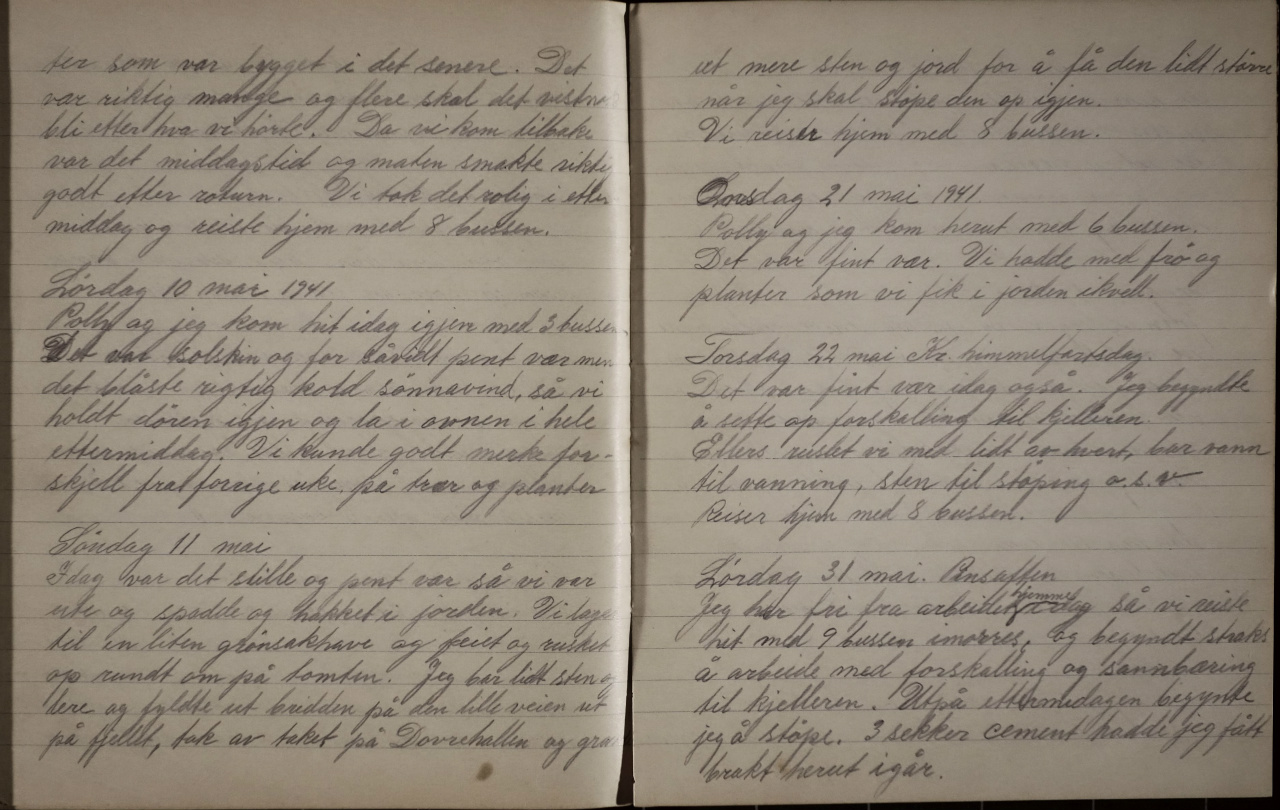 ter som var bygget i det senere. Det
var riktig mange og flere skal det vestno
bli etter hva vi hørte. Da vi kom tilbake
var det middagstid og maten smakte rikti
godt efter roturn. Vi tok det rolig i etter
middag og reiste hjem med 8 bussen.
Lørdag 10 mai 1941
Polly og jeg kom hit idag igjen med 3 bussen
Det var solskin og for såvidt pent vær men
det blåste rigtig kold sønnavind, så vi
holdt døren igjen og la i ovnen i hele
ettermiddag. Vi kunde godt merke for-
skjell fra forrige uke på trær og planter
Søndag 11 mai
Idag var det stille og pent vær så vi var
ute og spadde og hakket i jorden. Vi laget
til en liten grønsakhave og feiet og rusket
op rundt om på tomten. Jeg bar lidt sten og
lere og fyldte ut bredden på den lille veien ut
på fjellet, tok av taket på Dovrehallen og grav
ut mere sten og jord for å få den lidt større
når jeg skal støpe den op igjen.
Vi reiser hjem med 8 bussen.
Onsdag 21 mai 1941.
Polly og jeg kom herut med 6 bussen.
Det var fint vær. Vi hadde med frø og
planter som vi fik i jorden ikvell.
Torsdag 22 mai Kr. himmelfartsdag.
Det var fint vær idag også. Jeg begyndte
å sette op forskalling til kjelleren.
Ellers ruslet vi med lidt av hvert, bar vann
til vanning, sten til støping o.s.v.
Reiser hjem med 8 bussen.
Lørdag 31 mai. Pinsaften
Jeg har fri fra arbeidet hjemme idag så vi reiste
hit med 9 bussen imorres, og begyndt straks
å arbeide med forskalling og sannbæring
til kjelleren. Utpå ettermidagen begynte
jeg å støpe. 3 sekker cement hadde jeg fått
brakt herut igår.